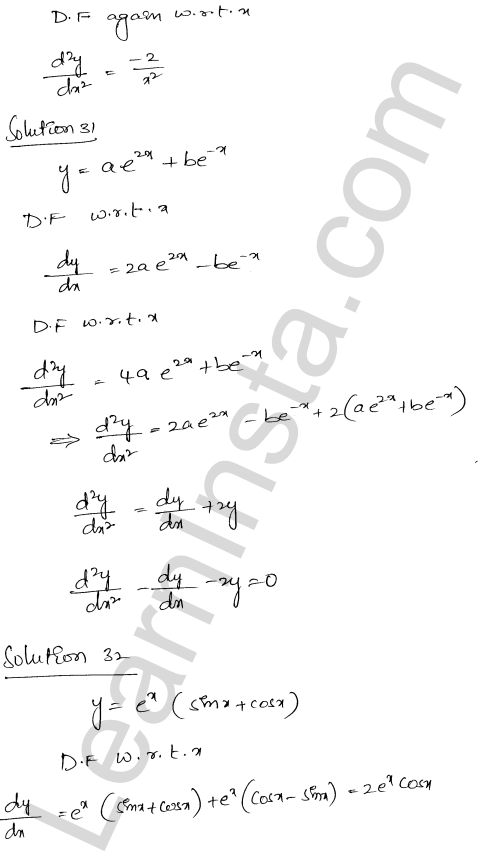 D.F again w.r.t.x
d²y/dx² = -2/x²
Solution 31
y = ae^2x + be^-x
D.F w.r.t.x
dy/dx = 2ae^2x - be^-x
D.F w.r.t.x
d²y/dx² = 4ae^2x + be^-x
⇒ d²y/dx² = 2ae^2x - be^-x + 2(ae^2x + be^-x)
d²y/dx² = dy/dx + 2y
d²y/dx² - dy/dx - 2y = 0
Solution 32
y = e^x (sinx + cosx)
D.F w.r.t.x
dy/dx = e^x (sinx + cosx) + e^x (cosx - sinx) = 2e^x cosx
LearnInsta.com